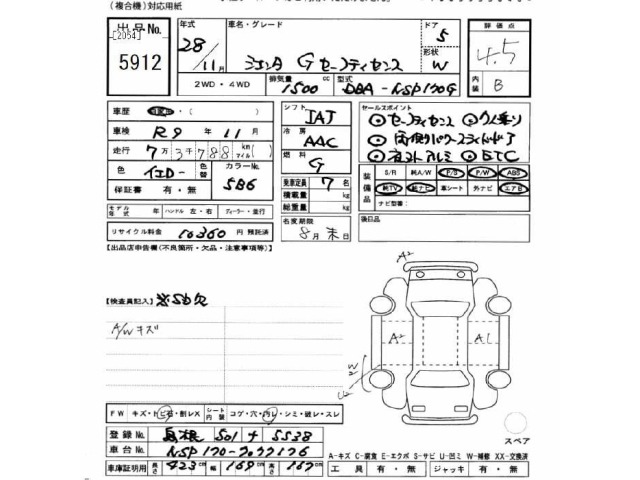 (複合機)対応用紙
出品No. [2054] 5912
年式 28/11月
車名・グレード シエンタ G セーフティセンス
ドア 5
形状 W
評価点 4.5
内装 B
2WD・4WD
排気量 1500 cc
型式 DBA-NSP170G
車歴 ・( )
車検 R9年11月
走行 7万3千788 km(マイル)
色 イエロー 色替
カラーNo. 5B6
保証書 有・無
シフト IAT
冷房 AAC
燃料 G
乗車定員 7名
積載量 kg
総重量 kg
セールスポイント
◎セーフティセンス ◎7人乗り
◎両側パワースライドドア
◎社外アルミ ◎ETC
装備品 S/R 純A/W P/S P/W ABS
純TV 純ナビ 革シート 外ナビ エアB
ナビ型番:
モデル年式 年 ハンドル 左・右 ディーラー・並行
リサイクル料金 10360円 預託済
名変期限 8月末日
後日品
【出品店申告欄(不良箇所・欠品・注意事項等)】
【検査員記入】
A/Wキズ
A2
A2
A1
W2
U2
FW キズ・トビ石・削レX シート内装 コゲ・穴・汚レ・シミ・破レ・スレ
登録No. 島根 501 ナ 5538
車台No. NSP170-7077176
車庫証明用 長さ 423cm 幅 169cm 高さ 167cm
スペア
A-キズ C-腐食 E-エクボ S-サビ U-凹ミ W-補修 XX-交換済
工具 有・無 ジャッキ 有・無